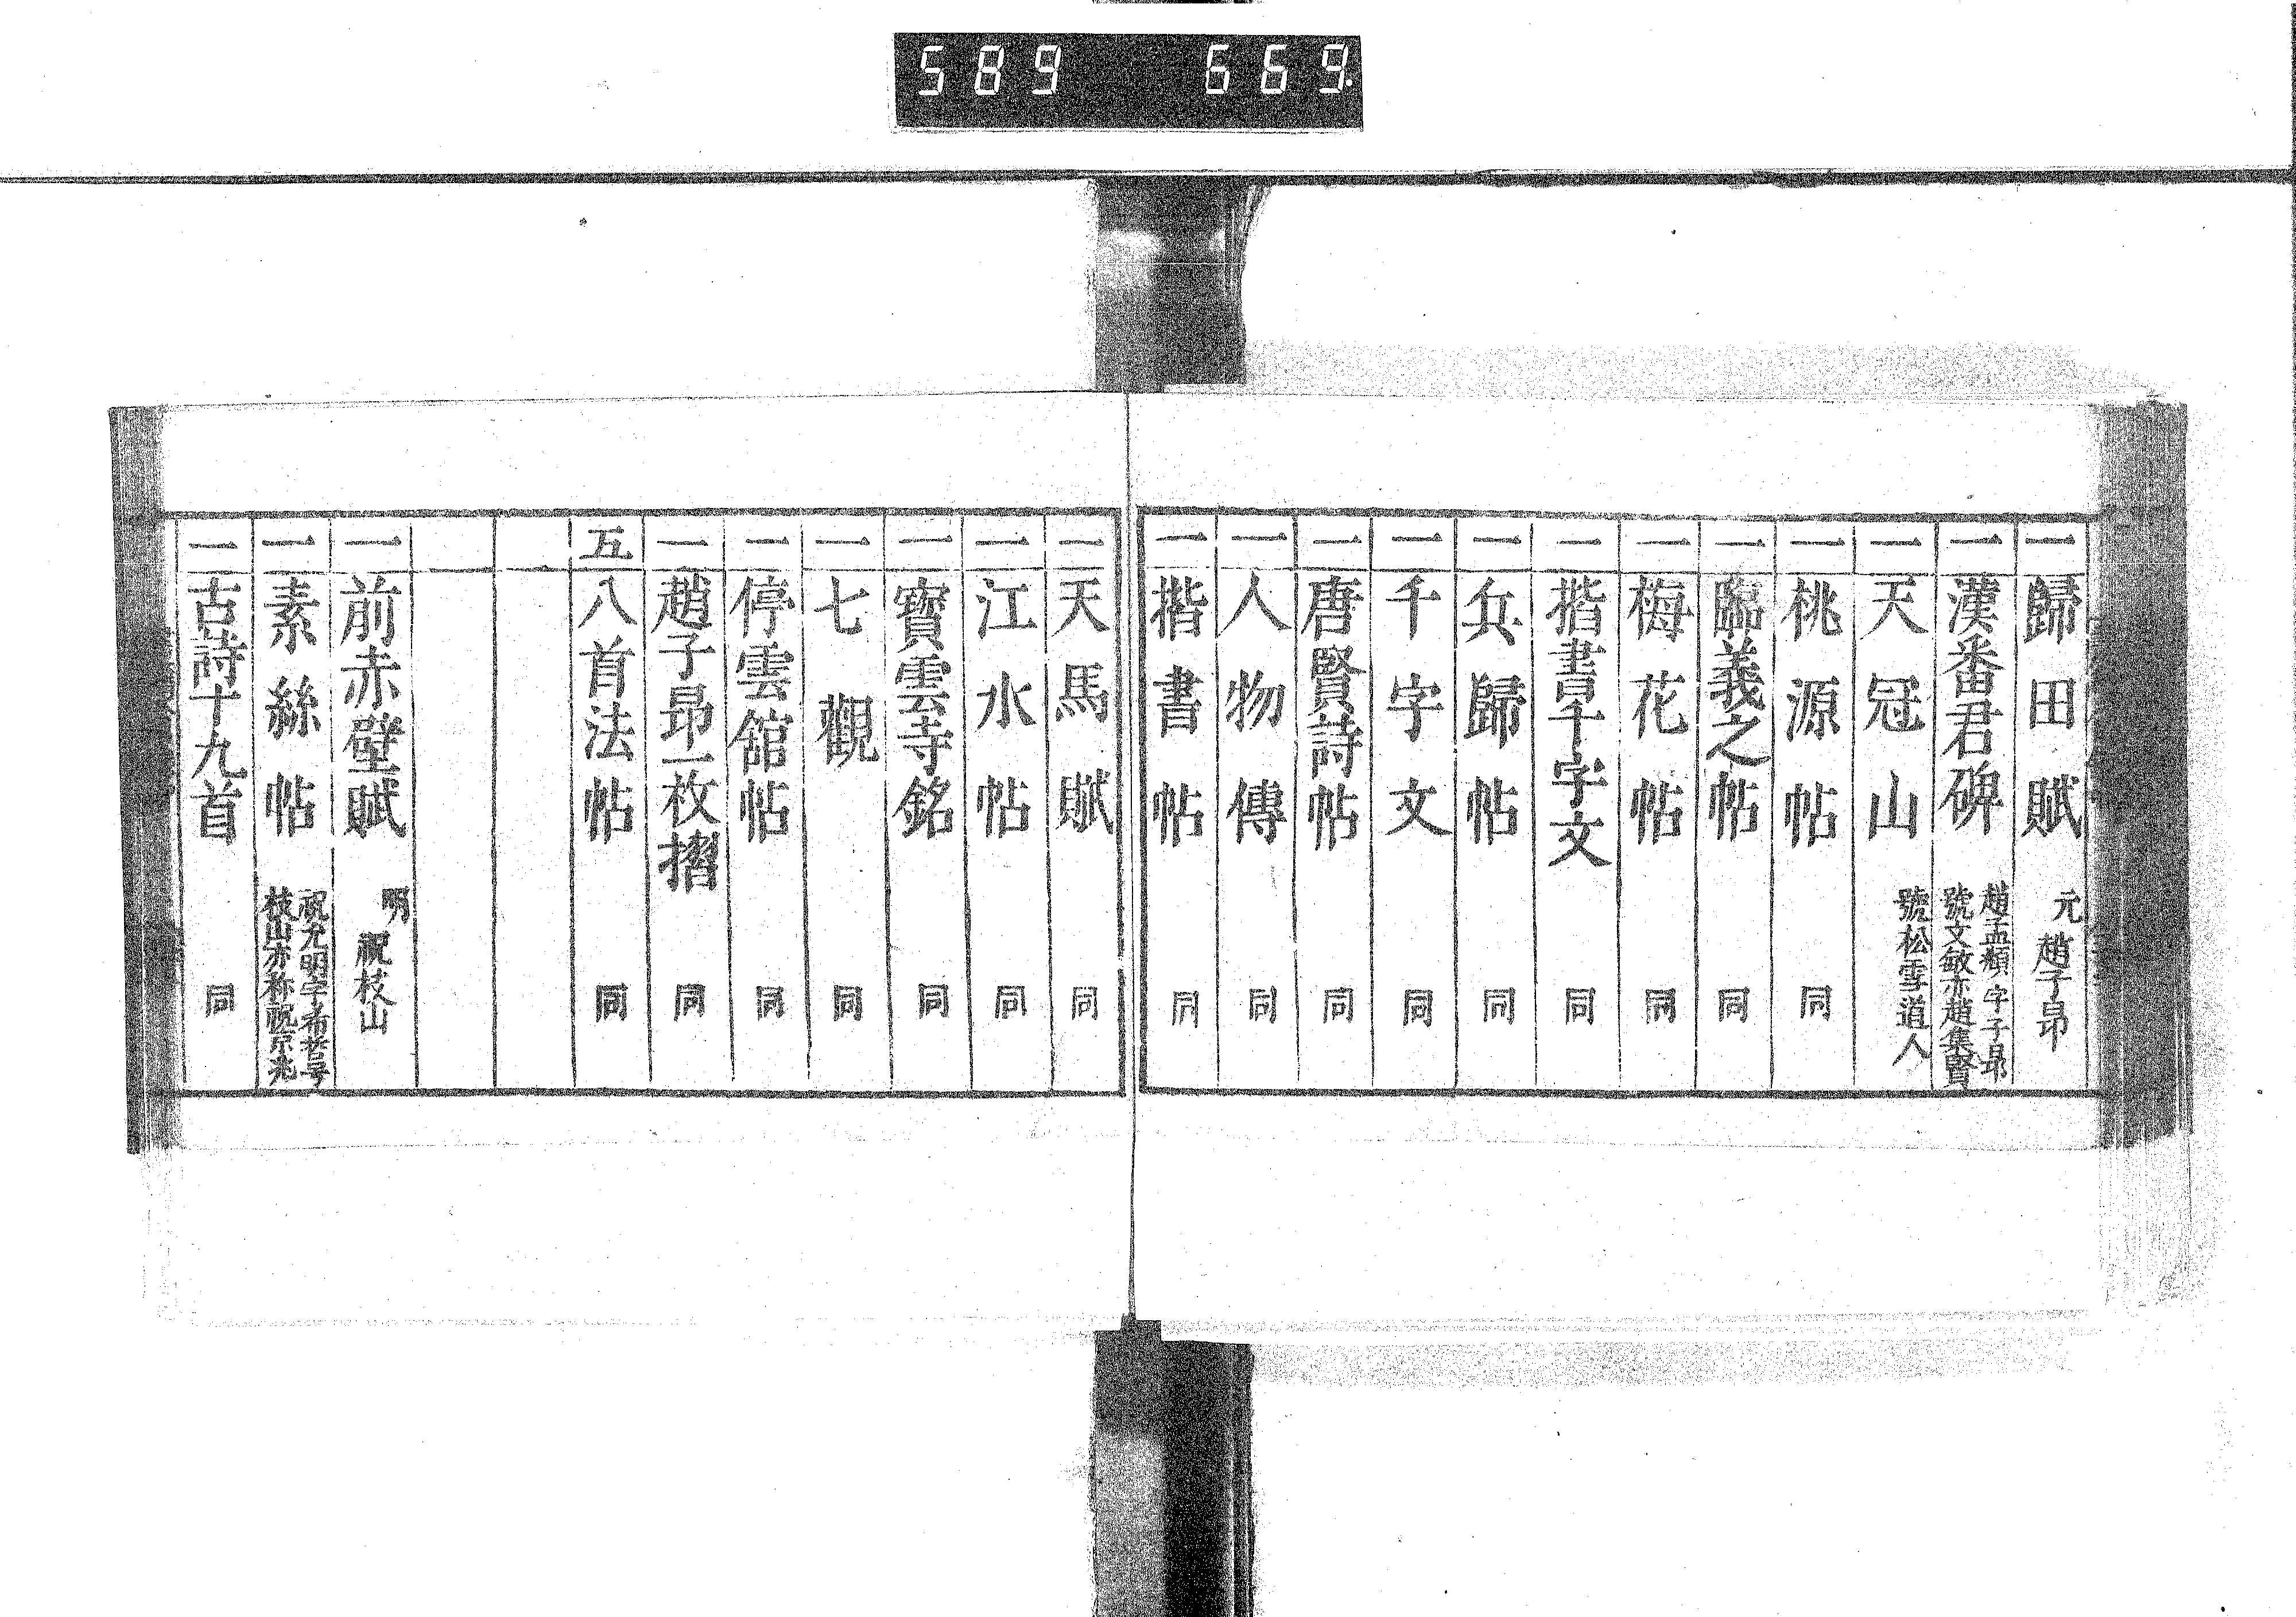 589 669.
一 歸田賦 元 趙子昂
一 漢番君碑 趙孟頫字子昂
號文敏亦趙集賢
一 天冠山 號松雪道人
一 桃源帖 同
一 臨義之帖 同
一 梅花帖 同
一 揩書千字文 同
一 兵歸帖 同
一 千字文 同
一 唐賢詩帖 同
一 人物傳 同
一 揩書帖 同
一 天馬賦 同
一 江水帖 同
一 寶雲寺銘 同
一 七觀 同
一 停雲舘帖 同
一 趙子昂一枚摺 同
五 八首法帖 同
一 前赤壁賦 明 祝枝山
一 素絲帖 祝允明字希哲号
枝山亦称祝京兆
一 古詩十九首 同